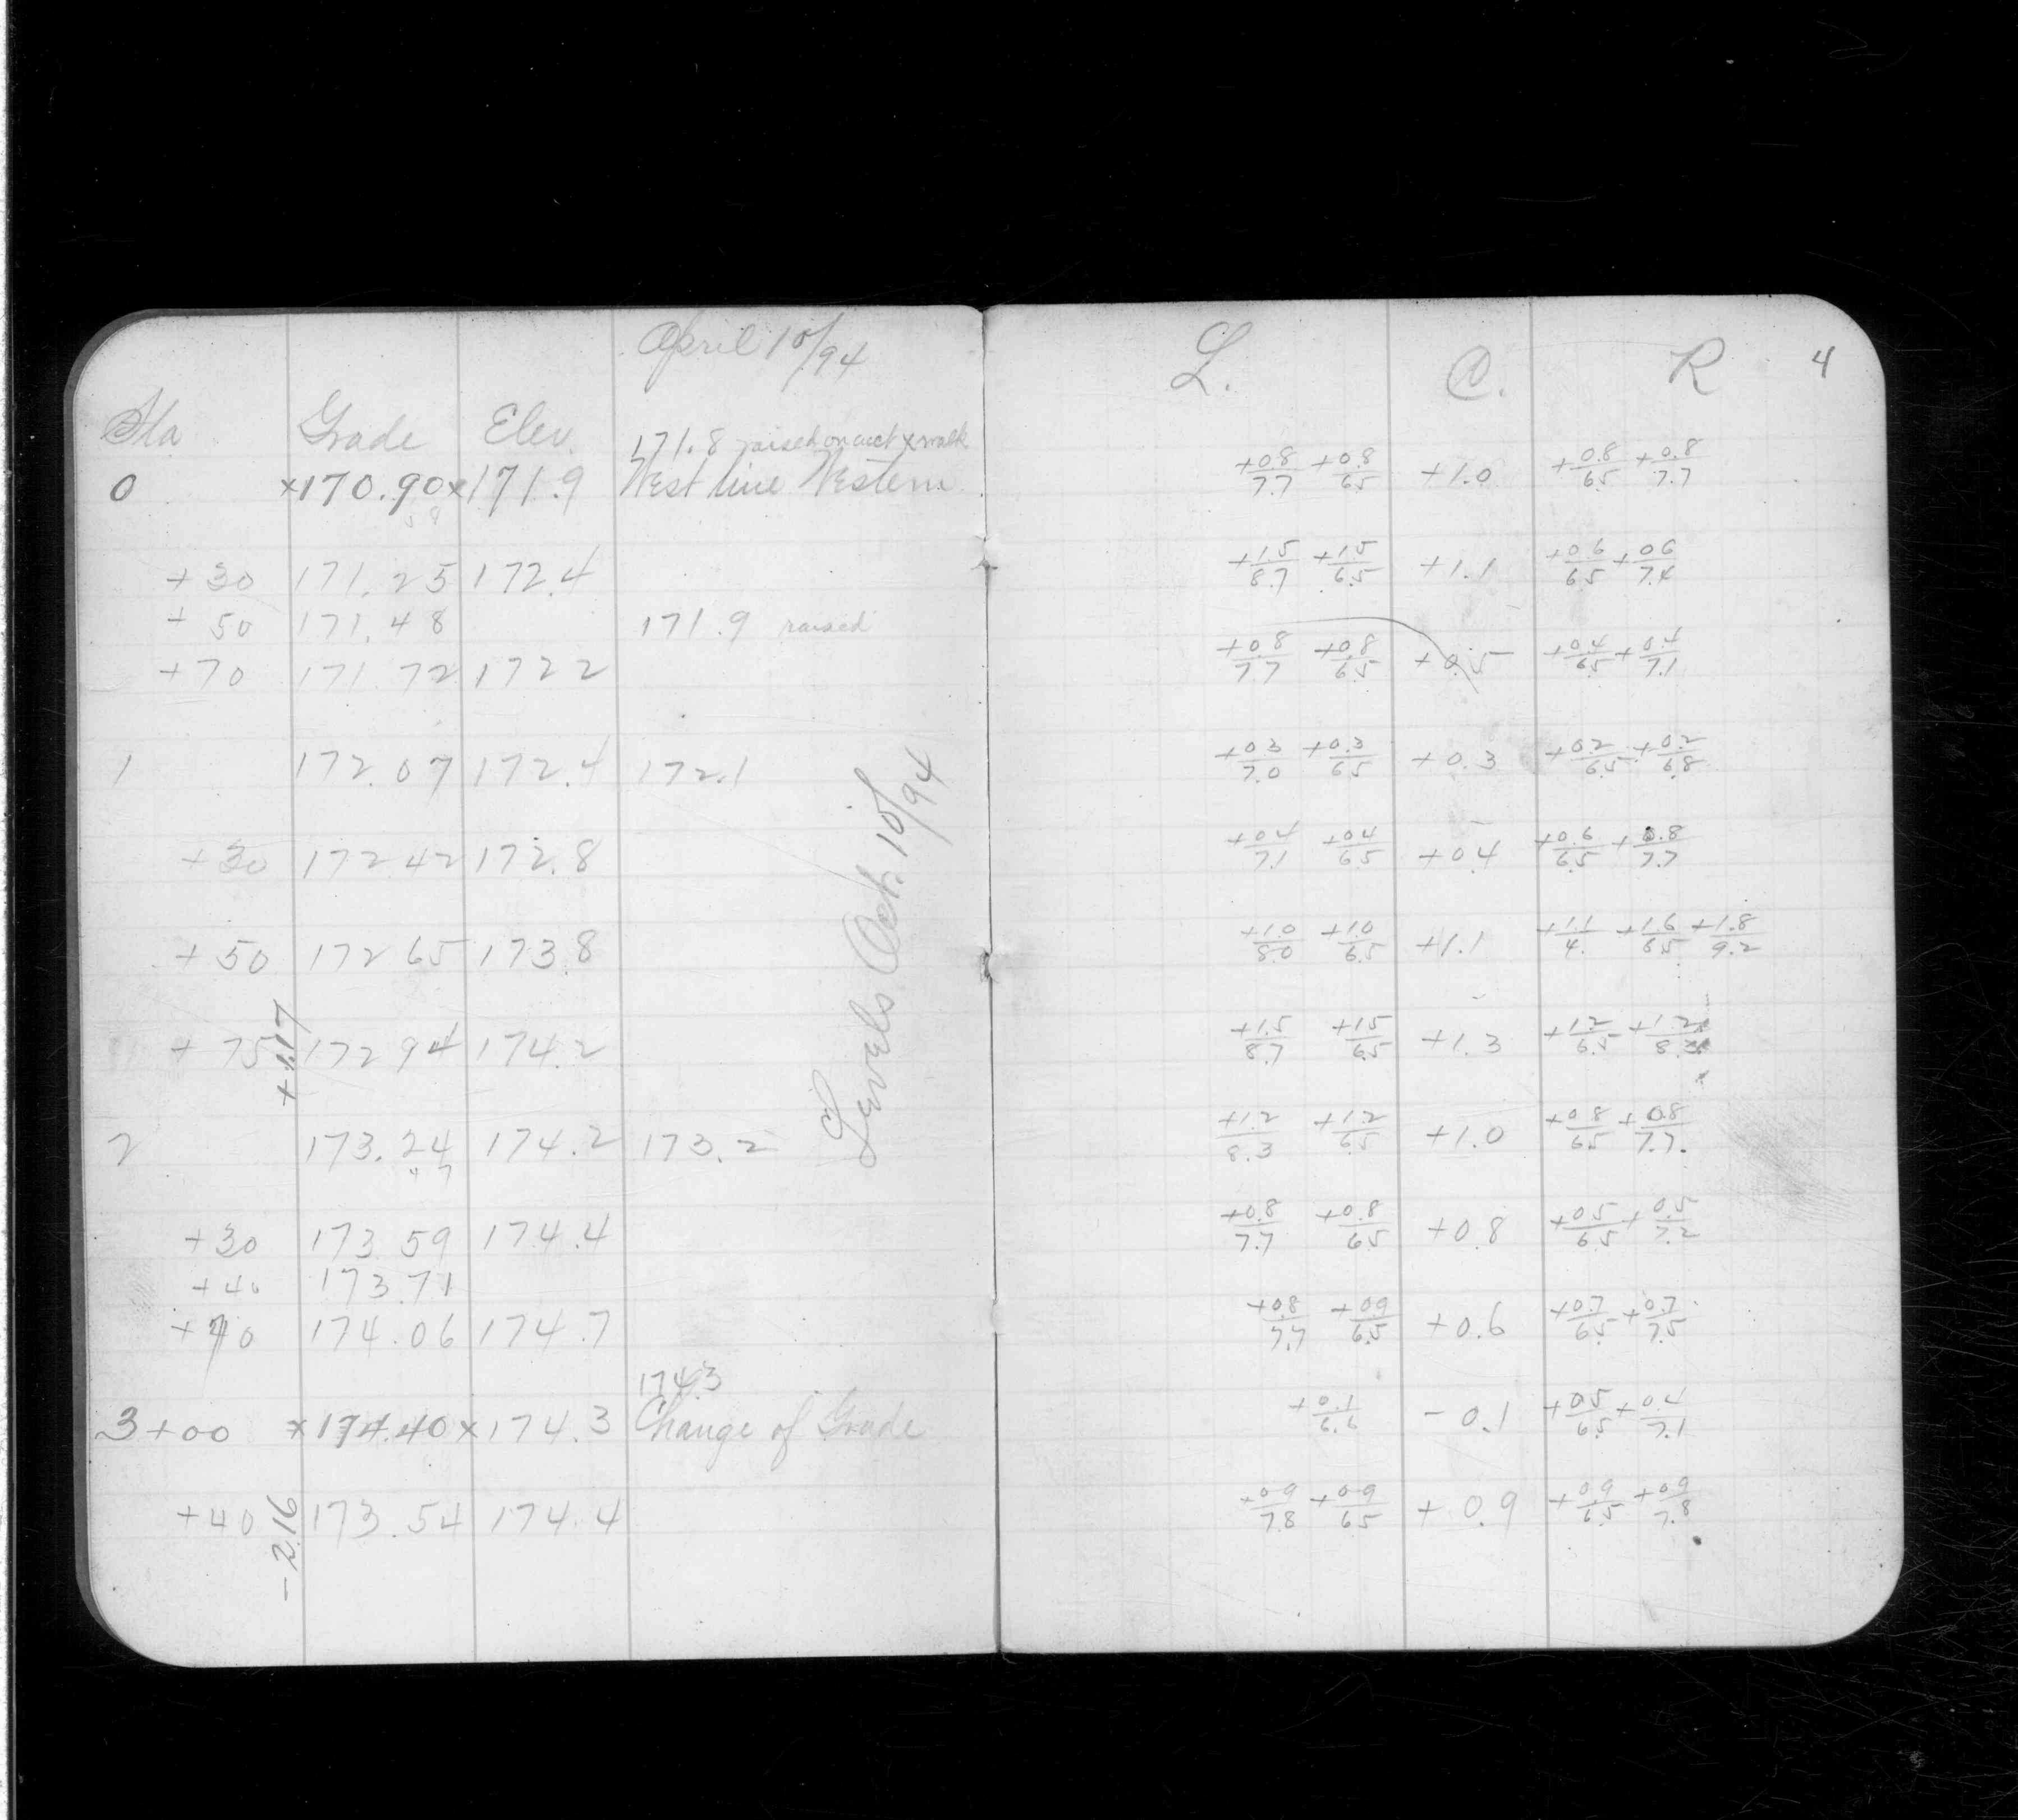 April 10/94
Sta. Grade Elev. 171.8 raised on acct x walk
0 ×170.90 ×171.9 West line Western
+30 171.25 172.4
+50 171.48 171.9 raised
+70 171.72 172 2
1 172.07 172.4 172.1
+30 172 42 172.8
+50 172 65 173.8
+75 172 94 174.2
+1.17
2 173.24 174.2 173.2
+30 173 59 174.4
+40 173 71
+70 174.06 174.7
174.3
3+00 ×174.40 ×174.3 Change of Grade
+40 173.54 174.4
-2.16
Levels Oct. 10/94
L. C. R 4
+0.8/7.7 +0.8/6.5 +1.0 +0.8/6.5 +0.8/7.7
+1.5/8.7 +1.5/6.5 +1.1 +0.6/6.5 +0.6/7.4
+0.8/7.7 +0.8/6.5 +0.5 +0.4/6.5 +0.4/7.1
+0.3/7.0 +0.3/6.5 +0.3 +0.2/6.5 +0.2/6.8
+0.4/7.1 +0.4/6.5 +0.4 +0.6/6.5 +0.8/7.7
+1.0/8.0 +1.0/6.5 +1.1 +1.1/4. +1.6/6.5 +1.8/9.2
+1.5/8.7 +1.5/6.5 +1.3 +1.2/6.5 +1.2/8.3
+1.2/8.3 +1.2/6.5 +1.0 +0.8/6.5 +0.8/7.7.
+0.8/7.7 +0.8/6.5 +0.8 +0.5/6.5 +0.5/7.2
+0.8/7.7 +0.9/6.5 +0.6 +0.7/6.5 +0.7/7.5
+0.1/6.6 -0.1 +0.5/6.5 +0.4/7.1
+0.9/7.8 +0.9/6.5 +0.9 +0.9/6.5 +0.9/7.8